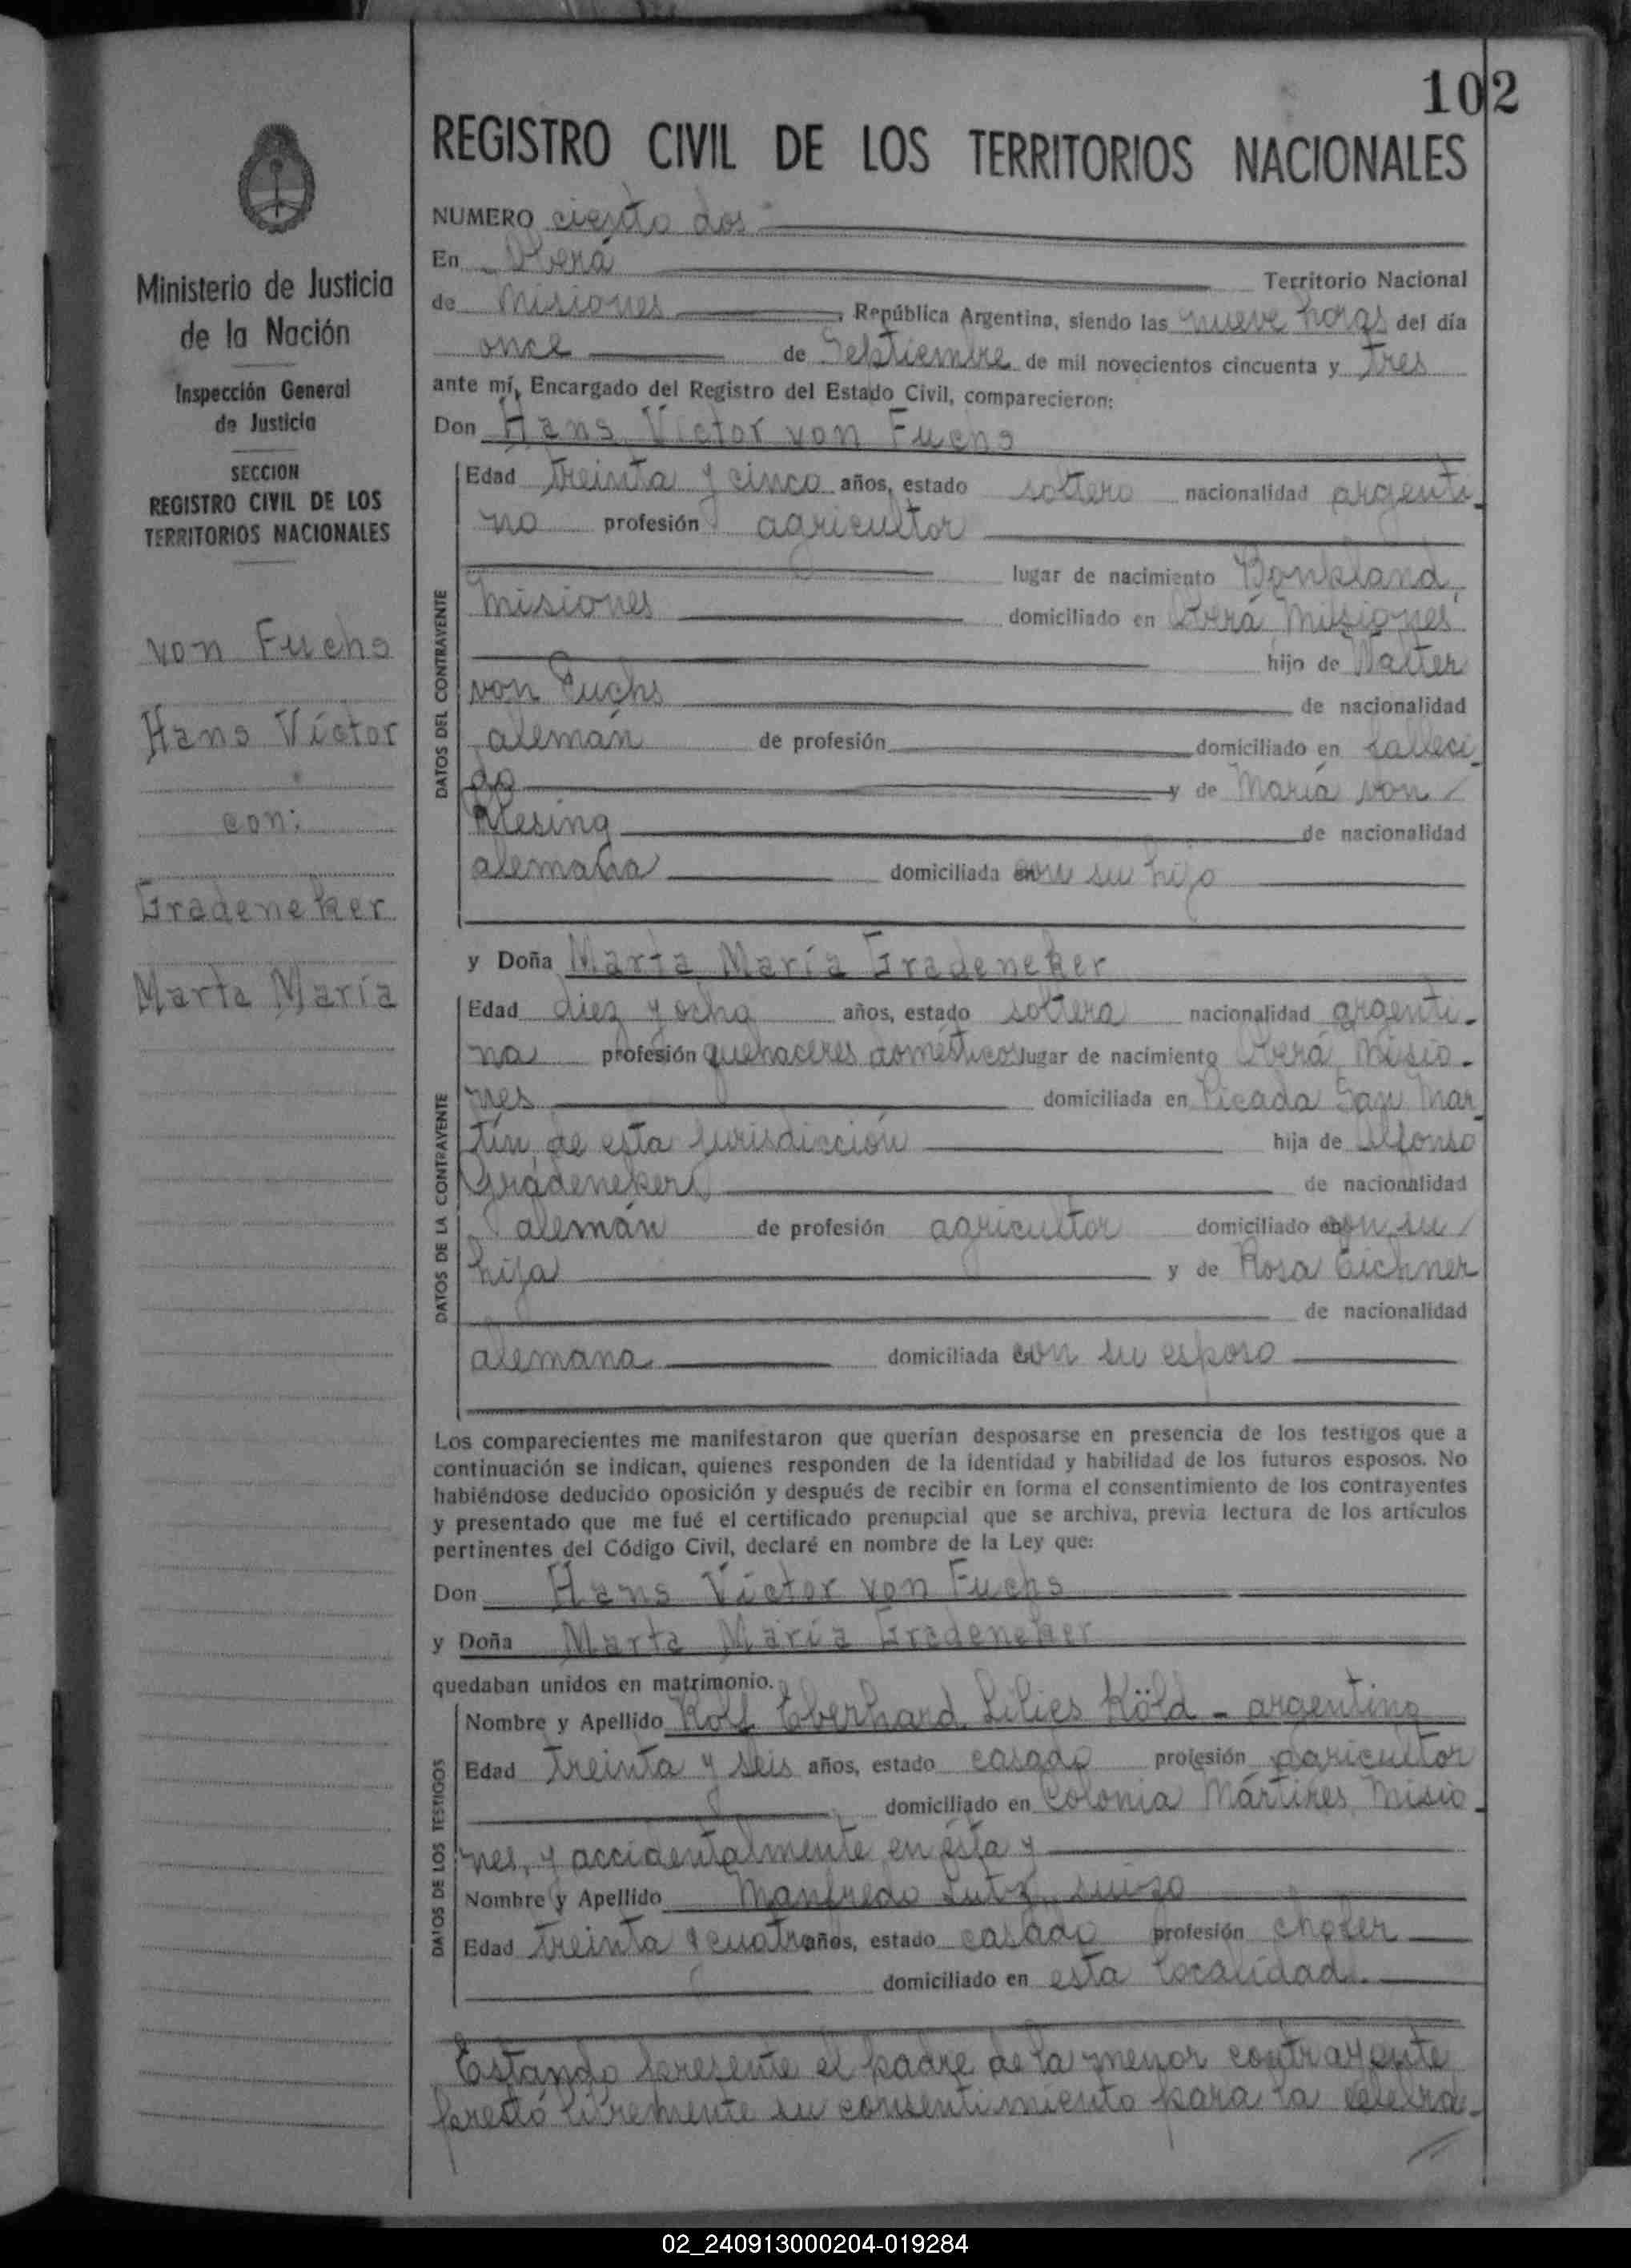 102
REGISTRO CIVIL DE LOS TERRITORIOS NACIONALES
Ministerio de Justicia
de la Nación
Inspección General
de Justicia
SECCION
REGISTRO CIVIL DE LOS
TERRITORIOS NACIONALES
von Fuchs
Hans Víctor
con:
Gradeneker
Marta María
NUMERO ciento dos
En Oberá Territorio Nacional
de Misiones, República Argentina, siendo las nueve horas del día
once de Septiembre de mil novecientos cincuenta y tres
ante mí, Encargado del Registro del Estado Civil, comparecieron:
Don Hans Víctor von Fuchs
DATOS DEL CONTRAYENTE
Edad treinta y cinco años, estado soltero nacionalidad argenti-
no profesión agricultor
lugar de nacimiento Bonpland,
Misiones domiciliado en Oberá Misiones
hijo de Walter
von Fuchs de nacionalidad
alemán de profesión domiciliado en falleci-
do y de María von
de nacionalidad
alemana domiciliada con su hijo
y Doña Marta María Gradeneker
DATOS DE LA CONTRAYENTE
Edad diez y ocho años, estado soltera nacionalidad argenti-
na profesión quehaceres domésticos lugar de nacimiento Oberá Misio-
nes domiciliada en Picada San Mar-
tín, de esta jurisdicción hija de Alfonso
Gradeneker de nacionalidad
alemán de profesión agricultor domiciliado con su
hija y de Rosa Eichner
de nacionalidad
alemana domiciliada con su esposo
Los comparecientes me manifestaron que querían desposarse en presencia de los testigos que a
continuación se indican, quienes responden de la identidad y habilidad de los futuros esposos. No
habiéndose deducido oposición y después de recibir en forma el consentimiento de los contrayentes
y presentado que me fué el certificado prenupcial que se archiva, previa lectura de los artículos
pertinentes del Código Civil, declaré en nombre de la Ley que:
Don Hans Víctor von Fuchs
y Doña Marta María Gradeneker
quedaban unidos en matrimonio.
DATOS DE LOS TESTIGOS
Nombre y Apellido Rolf Eberhard Lilies Köld - argentino
Edad treinta y seis años, estado casado profesión agricultor
domiciliado en Colonia Mártires, Misio-
nes, y accidentalmente en ésta y
Nombre y Apellido Manfredo Lutz, suizo
Edad treinta y cuatro años, estado casado profesión chofer
domiciliado en esta localidad.
Estando presente el padre de la menor contrayente
prestó libremente su consentimiento para la celebra-
02_240913000204-019284